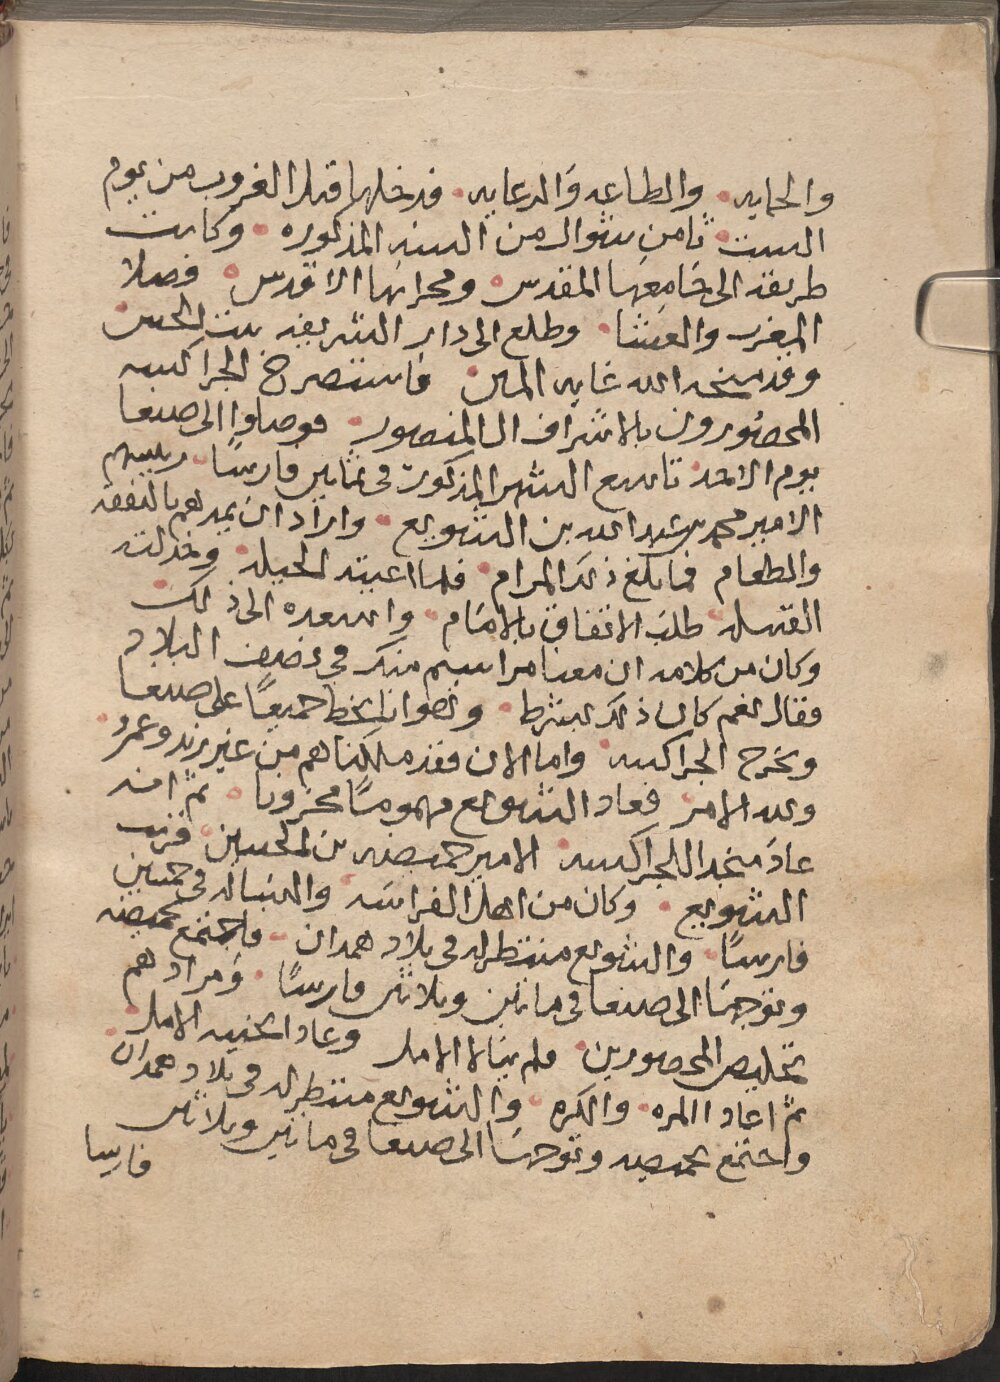 والحمايه والطاعه والرعايه فدخلها قبل الغروب من يوم
السبت ثامن شوال من السنه المذكوره وكانت
طريقه الى جامعها المقدس ومحرابها الاقدس فصلا
المغرب والعشا وطلع الى دار الشريفه بنت الحسن
وقد منحه الله غايه المنن فاستصرخ الجراكسه
المحصورون بالاشراف ال المنصور فوصلوا الى صنعا
يوم الاحد تاسع الشهر المذكور في ثمانين فارسًا رييسهم
الامير محمد بن عبد الله بن الشويع واراد ان يمدهم بالنفقه
والطعام فما بلغ ذلك المرام فلما اعيته الحيله وخذلته
القبيله طلب الاتفاق بالامام واسعده الى ذلك
وكان من كلامه ان معنا مراسيم منك في نصف البلاد
فقال نعم كان ذلك بشرط وتصوانا نحط جميعًا على صنعا
ونخرج الجراكسه واما الان فقد ملكناهم من غير زيد وعمرو
ولله الامر فعاد الشويع مهمومًا محزونا ثم انه
عاد منجدا للجراكسه الامير حميضه بن الحسين قريب
الشويع وكان من اهل الفراسه والنباله في خمسين
فارسًا والشويع منتظر له في بلاد همدان فاجتمع بحميضه
وتوجها الى صنعا في مائتين وثلاثين فارسًا ومرادهم
تخليص المحصورين فلم ينالا الامل وعادا بخيبه الامل
ثم اعادا المره والكره والشويع منتظر له في بلاد همدان
واجتمع بحميضه وتوجها الى صنعا في مائتين وثلاثين
فارسا